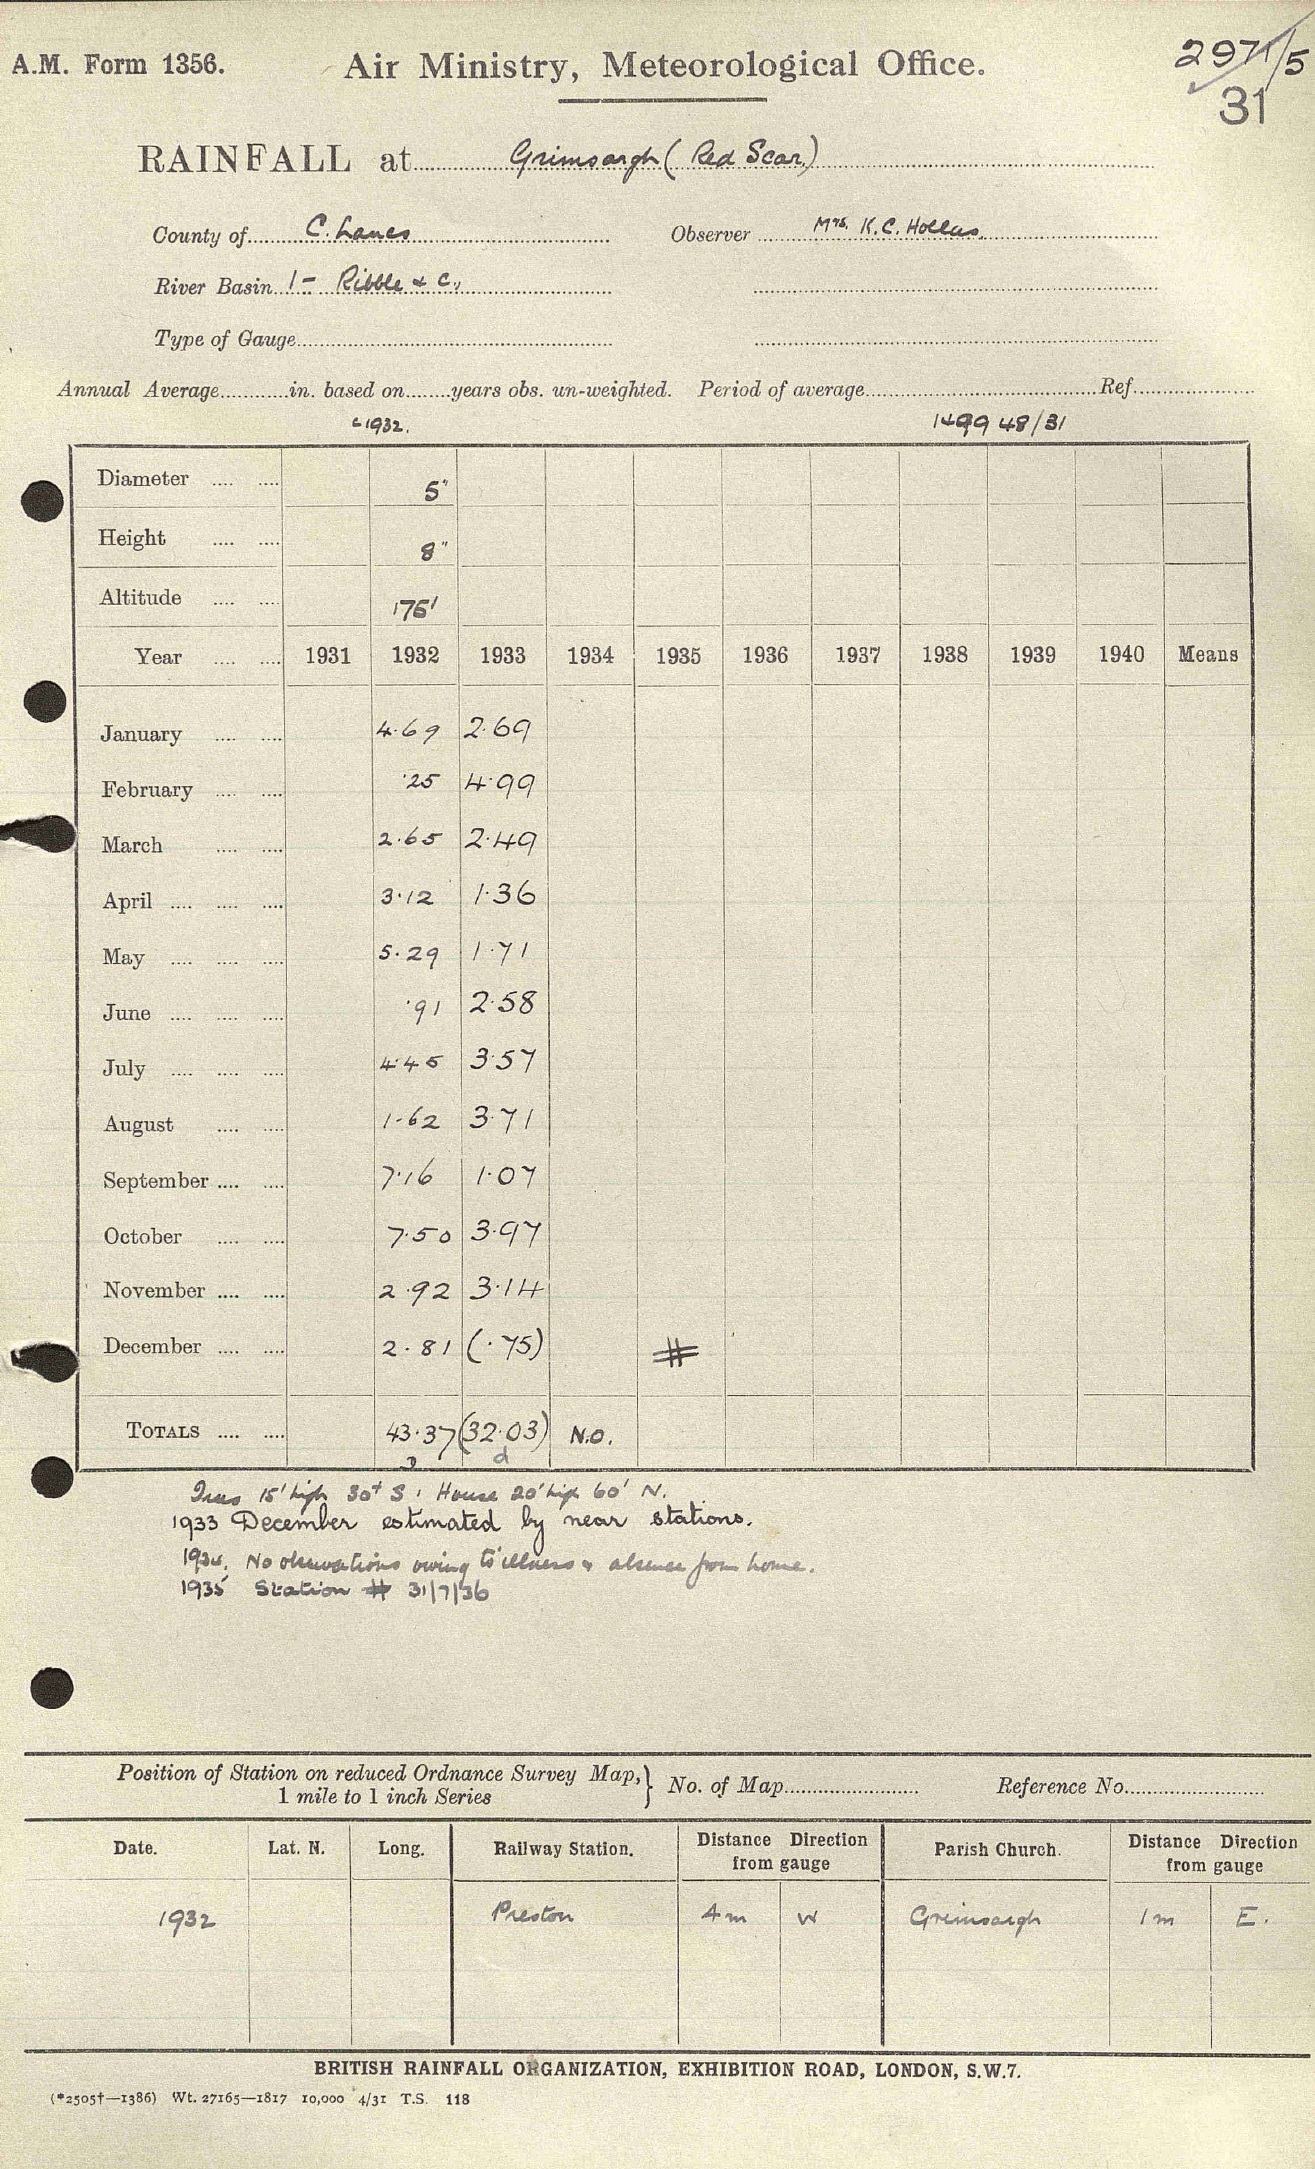 A.M. Form 1356. Air Ministry, Meteorological Office. 2971/5
31
RAINFALL at Grimsargh (Red Scar)
County of C. Lancs Observer Mrs. K.C. Hollas
River Basin 1- Ribble & C.,
Type of Gauge
Annual Average in. based on years obs. un-weighted. Period of average Ref.
1932. 1499 48/31
Diameter 5"
Height 8"
Altitude 175'
Year 1931 1932 1933 1934 1935 1936 1937 1938 1939 1940 Means
January 4.69 2.69
February .25 4.99
March 2.65 2.49
April 3.12 1.36
May 5.29 1.71
June .91 2.58
July 4.45 3.57
August 1.62 3.71
September 7.16 1.07
October 7.50 3.97
November 2.92 3.14
December 2.81 (.75) #
TOTALS 43.37 (32.03) N.O.
d
Trees 15' high 30+ S; House 20' high 60' N.
1933 December estimated by near stations.
1934. No observations owing to illness & absence from home.
1935 Station # 31/7/36
Position of Station on reduced Ordnance Survey Map, } No. of Map Reference No.
1 mile to 1 inch Series
Date. Lat. N. Long. Railway Station. Distance Direction from gauge Parish Church. Distance Direction from gauge
1932 Preston 4m W Grimsargh 1m E.
BRITISH RAINFALL ORGANIZATION, EXHIBITION ROAD, LONDON, S.W.7.
(*2505†—1386) Wt. 27165—1817 10,000 4/31 T.S. 118